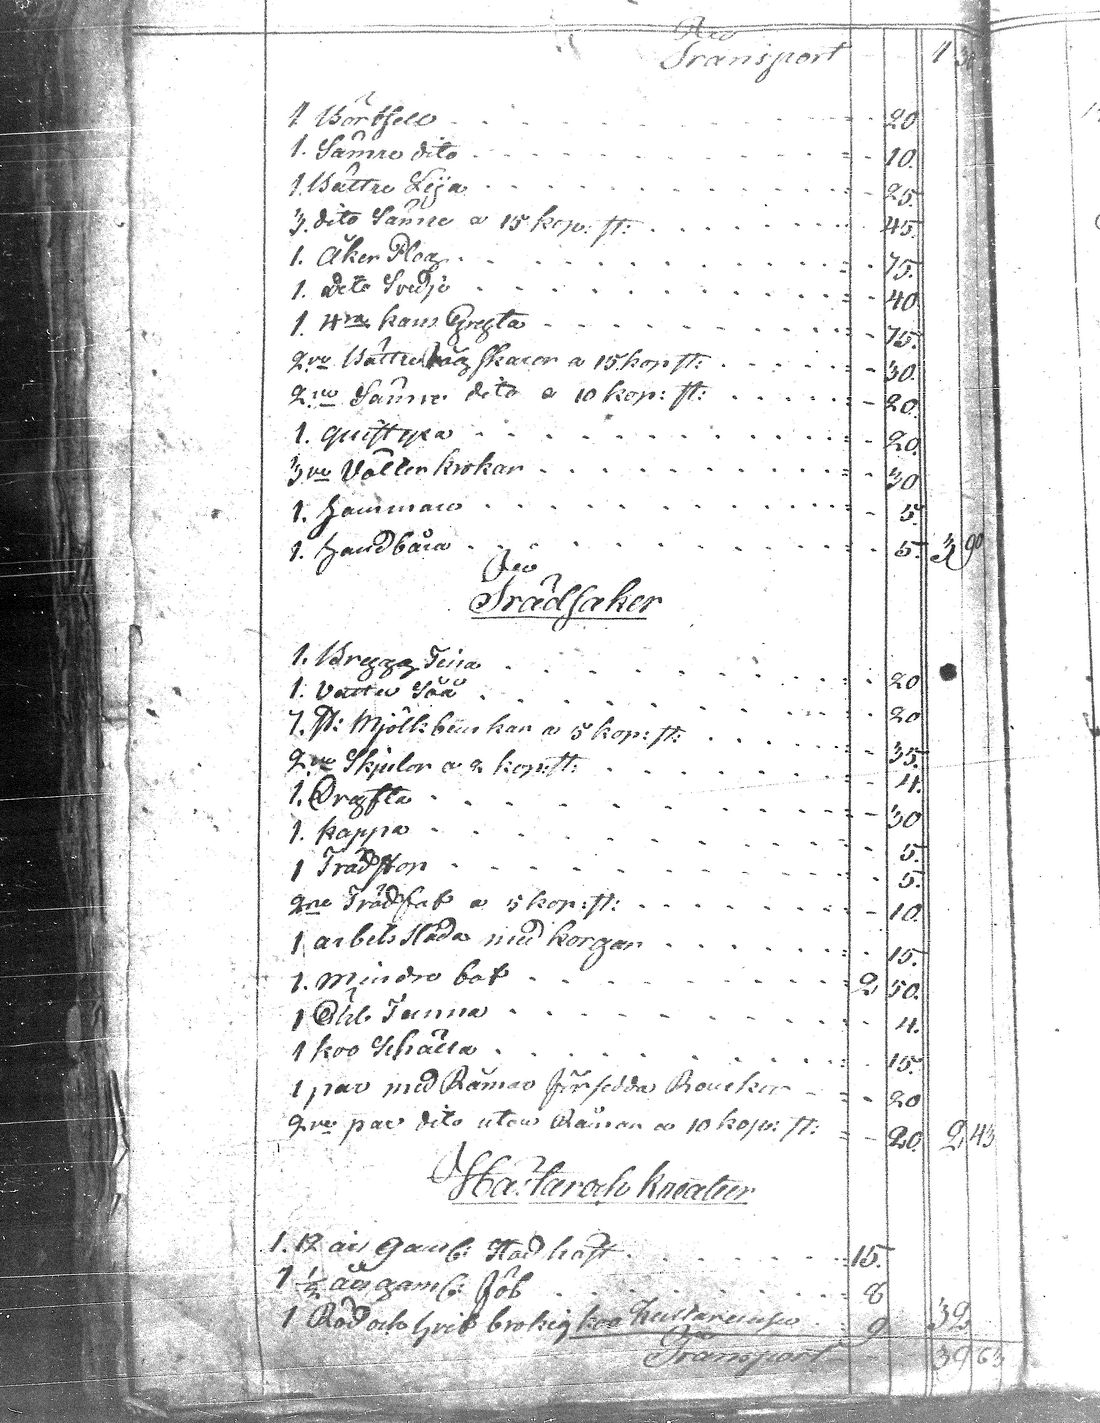 Transport 1 30
1 Bört 20
1. Sämre dito 10.
1. Bättre Lija 25.
3. dito Sämre a 15 kop: st: 45.
1. Åker Plog 75.
1. dito 40
1. 4ra 75.
2ne Bättre a 15 kop st: 30.
2ne Sämre dito a 10 kop: st: 20.
1. quist yxa 20.
3ne krokar 30
1. Hammare 5.
1. Handbåra 5. 3 90
Trädsaker
1. Brygg Tina 20
1. Vatten Såå 20
7. St: Mjölkbunkar a 5 kop: st: 35.
2ne Skjulor a 2 kop: st: 4.
1. 30
1. kappa 5.
1 Träd 5.
2ne Trädfat a 5 kop: st: 10.
1 arbets släda med korgar 15.
1. mindre båt 2 50.
1 Tunna 4.
1 koo Schälla 15.
1 par med 20
2ne par dito utan a 10 kop: st: 20. 2 43
Hästar och kreatur
1. 12 års gam: Stod häst 15.
1 1/2 års gam: Föl 8
1 Röd och hvit brokig koo 9 32
Transport 39 63